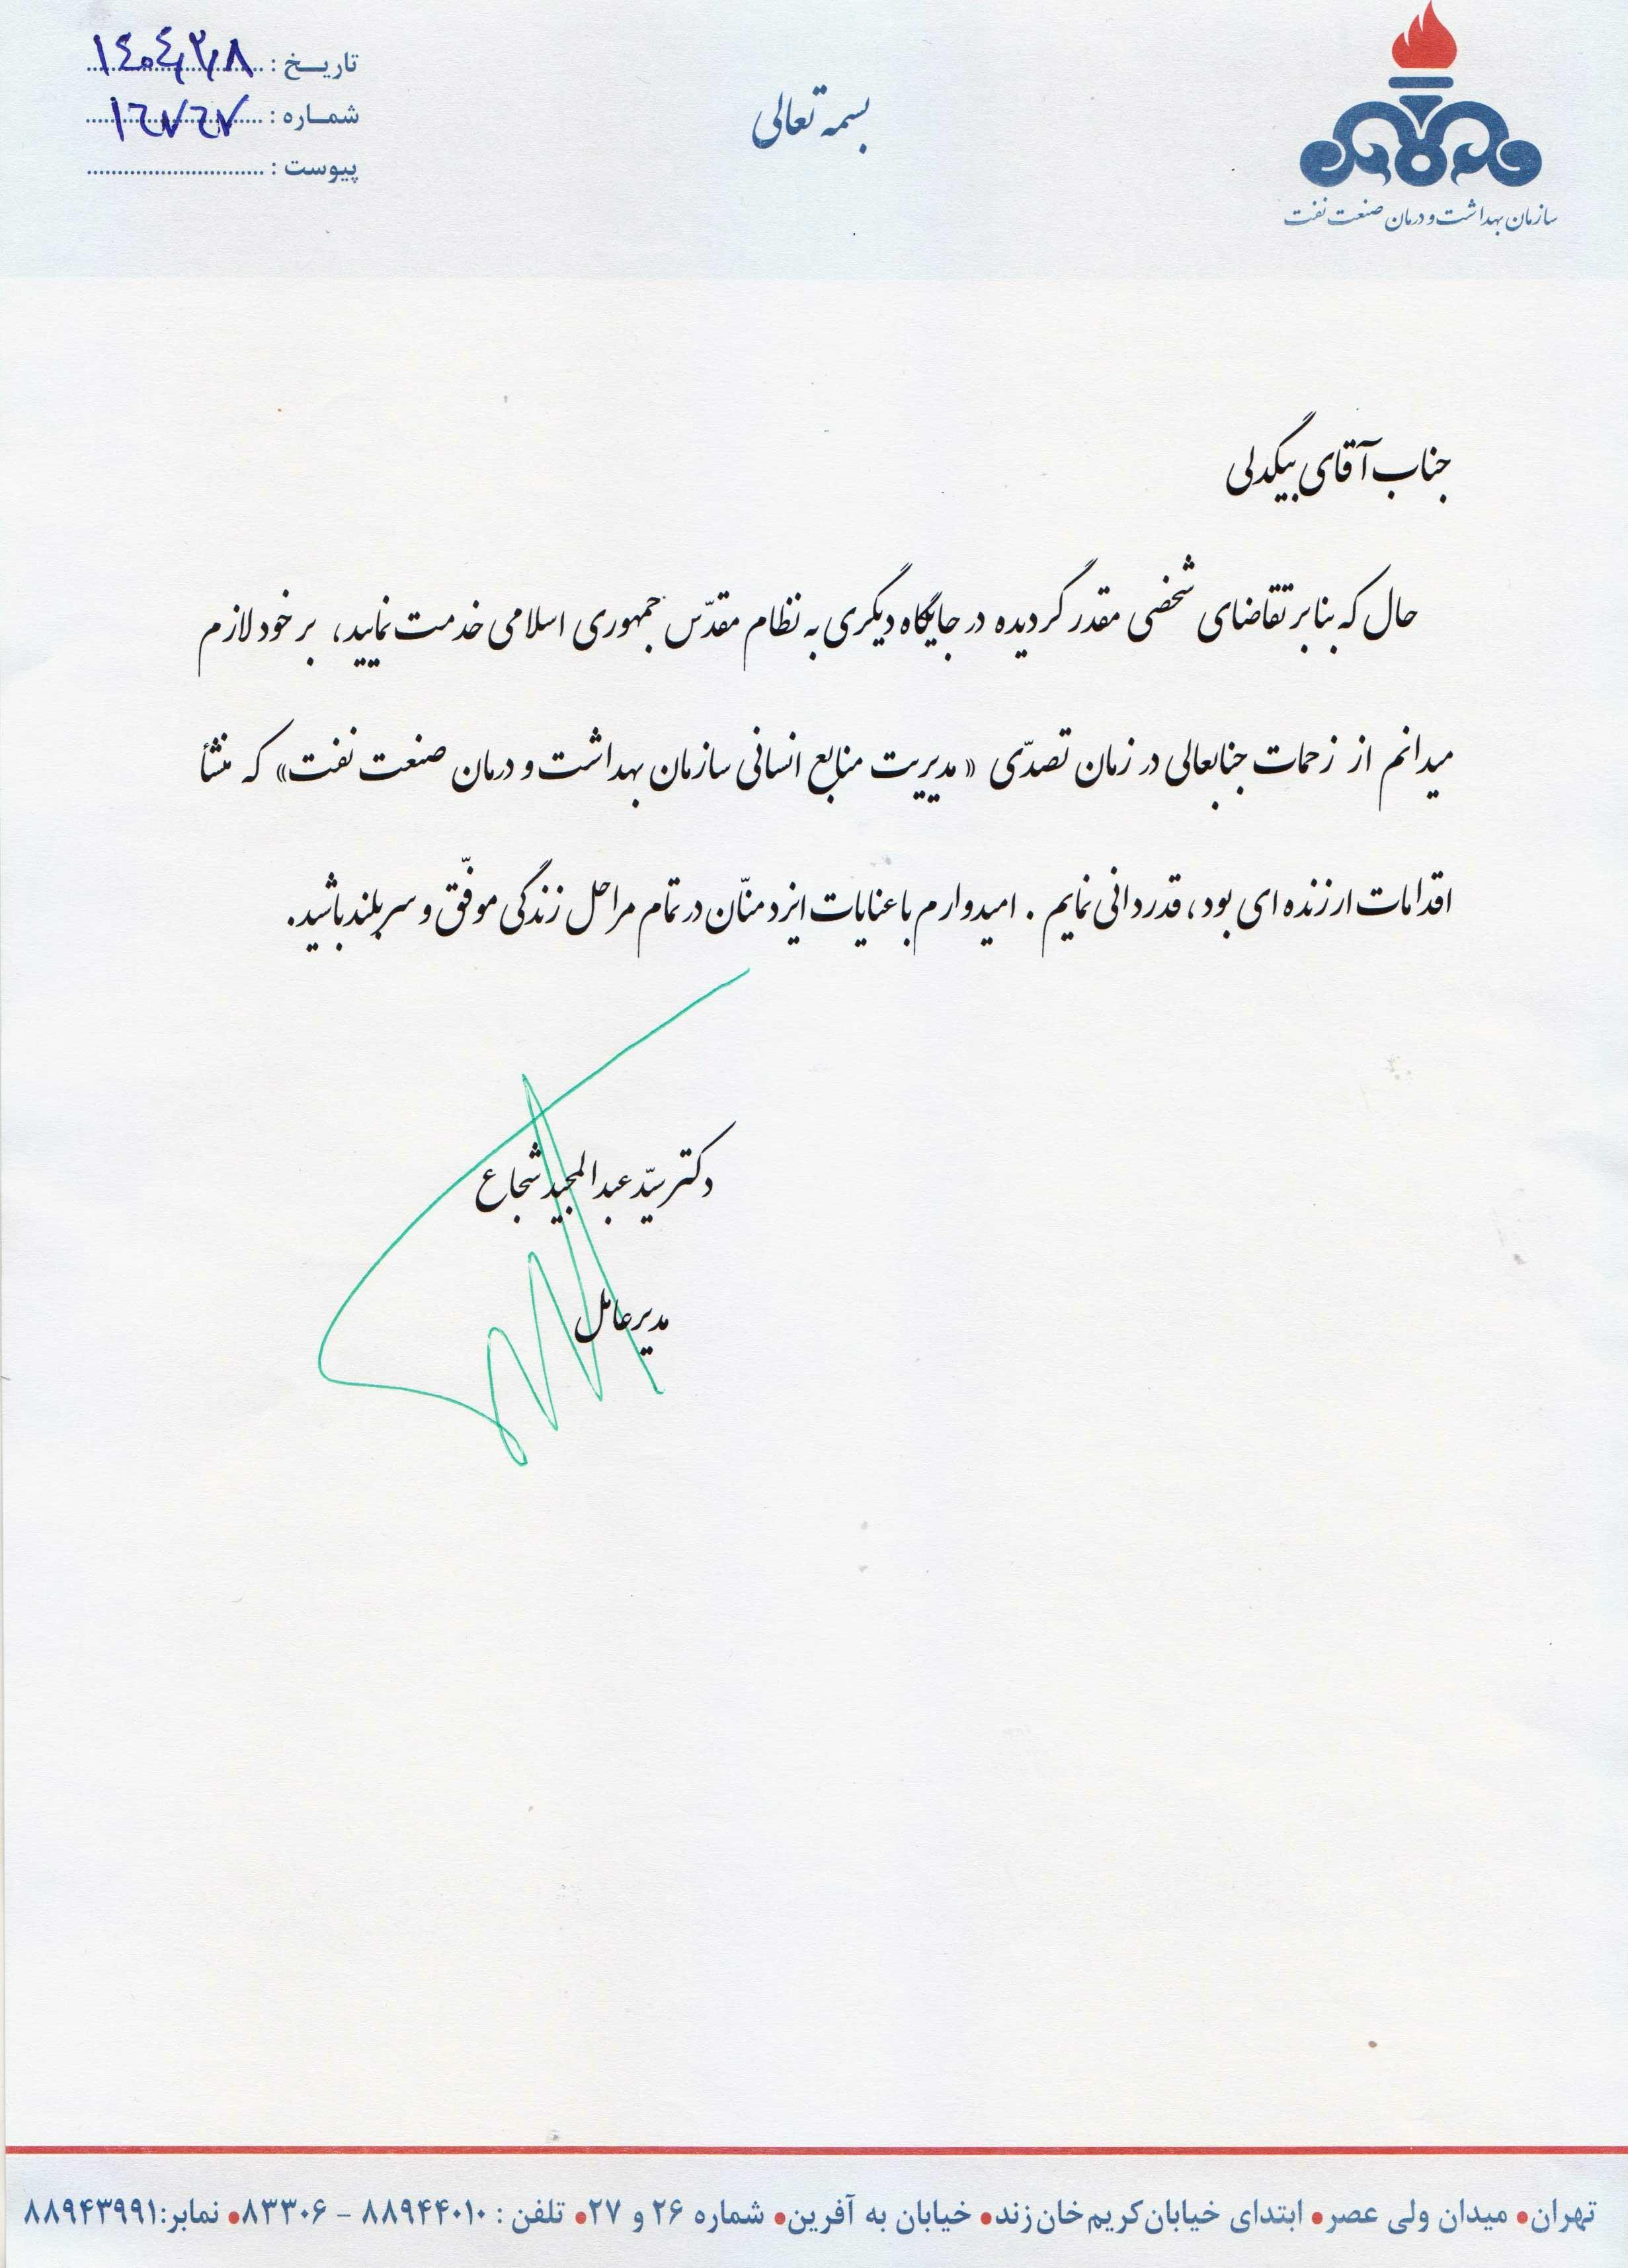 تاریخ : ۱۴۰۴/۲/۸
شماره :
پیوست :
بسمه تعالی
سازمان بهداشت و درمان صنعت نفت
جناب آقای بیگدلی
حال که بنابر تقاضای شخصی مقدر گردیده در جایگاه دیگری به نظام مقدّس جمهوری اسلامی خدمت نمایید، بر خود لازم
میدانم از زحمات جنابعالی در زمان تصدّی «مدیریت منابع انسانی سازمان بهداشت و درمان صنعت نفت» که منشأ
اقدامات ارزنده ای بود، قدردانی نمایم . امیدوارم با عنایات ایزد منّان در تمام مراحل زندگی موفّق و سربلند باشید.
دکتر سیّد عبدالمجید شجاع
مدیرعامل
تهران• میدان ولی عصر• ابتدای خیابان کریم خان زند• خیابان به آفرین• شماره ۲۶ و ۲۷• تلفن : ۸۸۹۴۴۰۱۰ - ۸۳۳۰۶• نمابر:۸۸۹۴۳۹۹۱